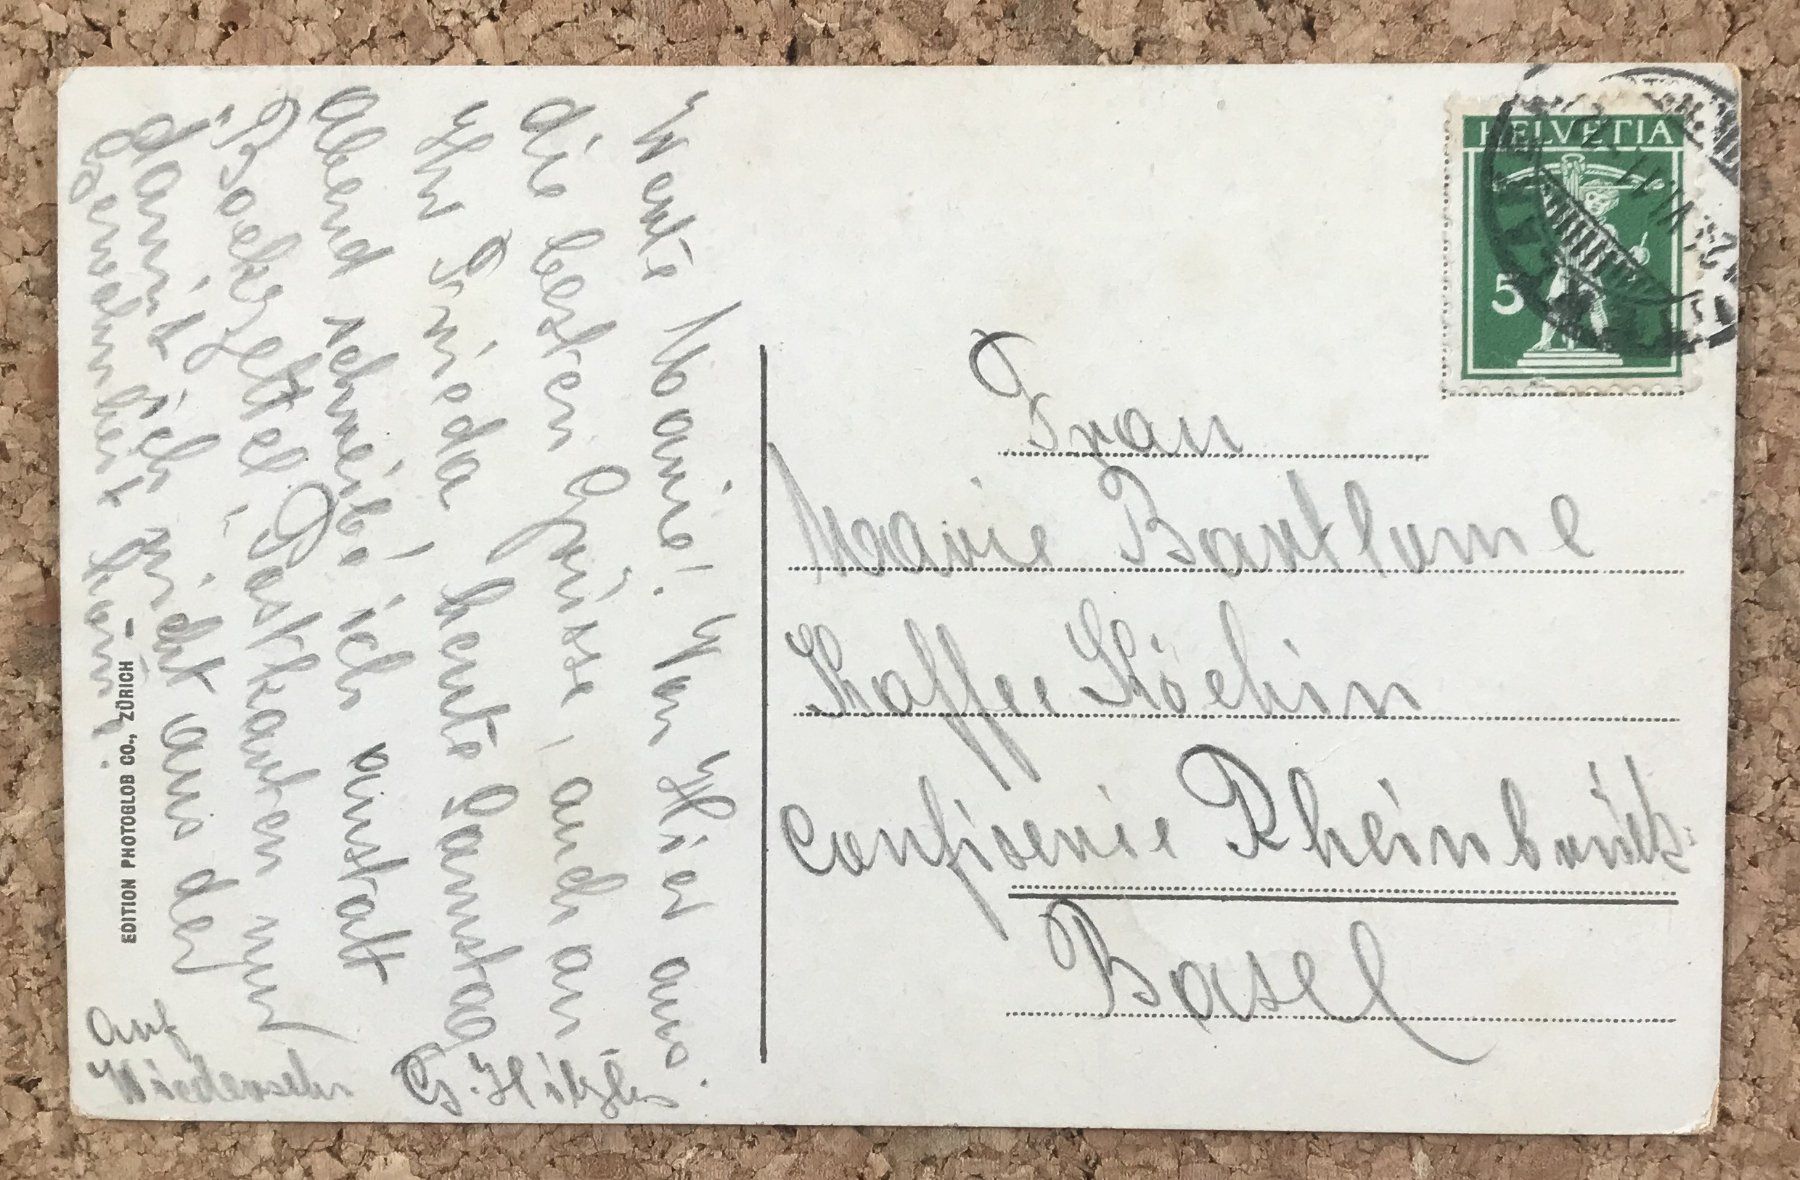 Werte Marie! Von Hier aus
die besten Grüsse, auch an
Ihr Frieda, heute Samstag
Abend schreibe ich anstatt
Backzettel Postkarten nur
damit ich nicht aus der
Gewohnheit kom!
Auf
Wiedersehn
G.
EDITION PHOTOGLOB CO., ZÜRICH
HELVETIA
5
Frau
Marie Bartlome
Kaffee Köchin
Confiserie Rheinbrück
Basel